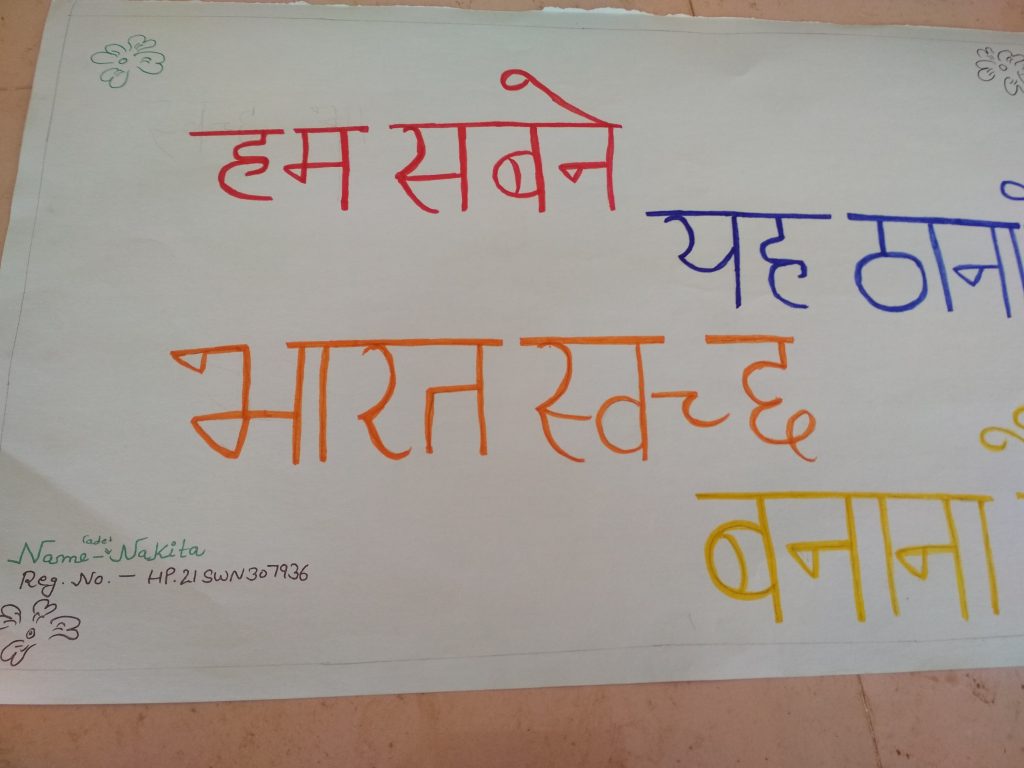 हम सबने
यह ठाना
भारत स्वच्छ
बनाना
Name - Cadet Nakita
Reg. No. - HP.21SWN307936